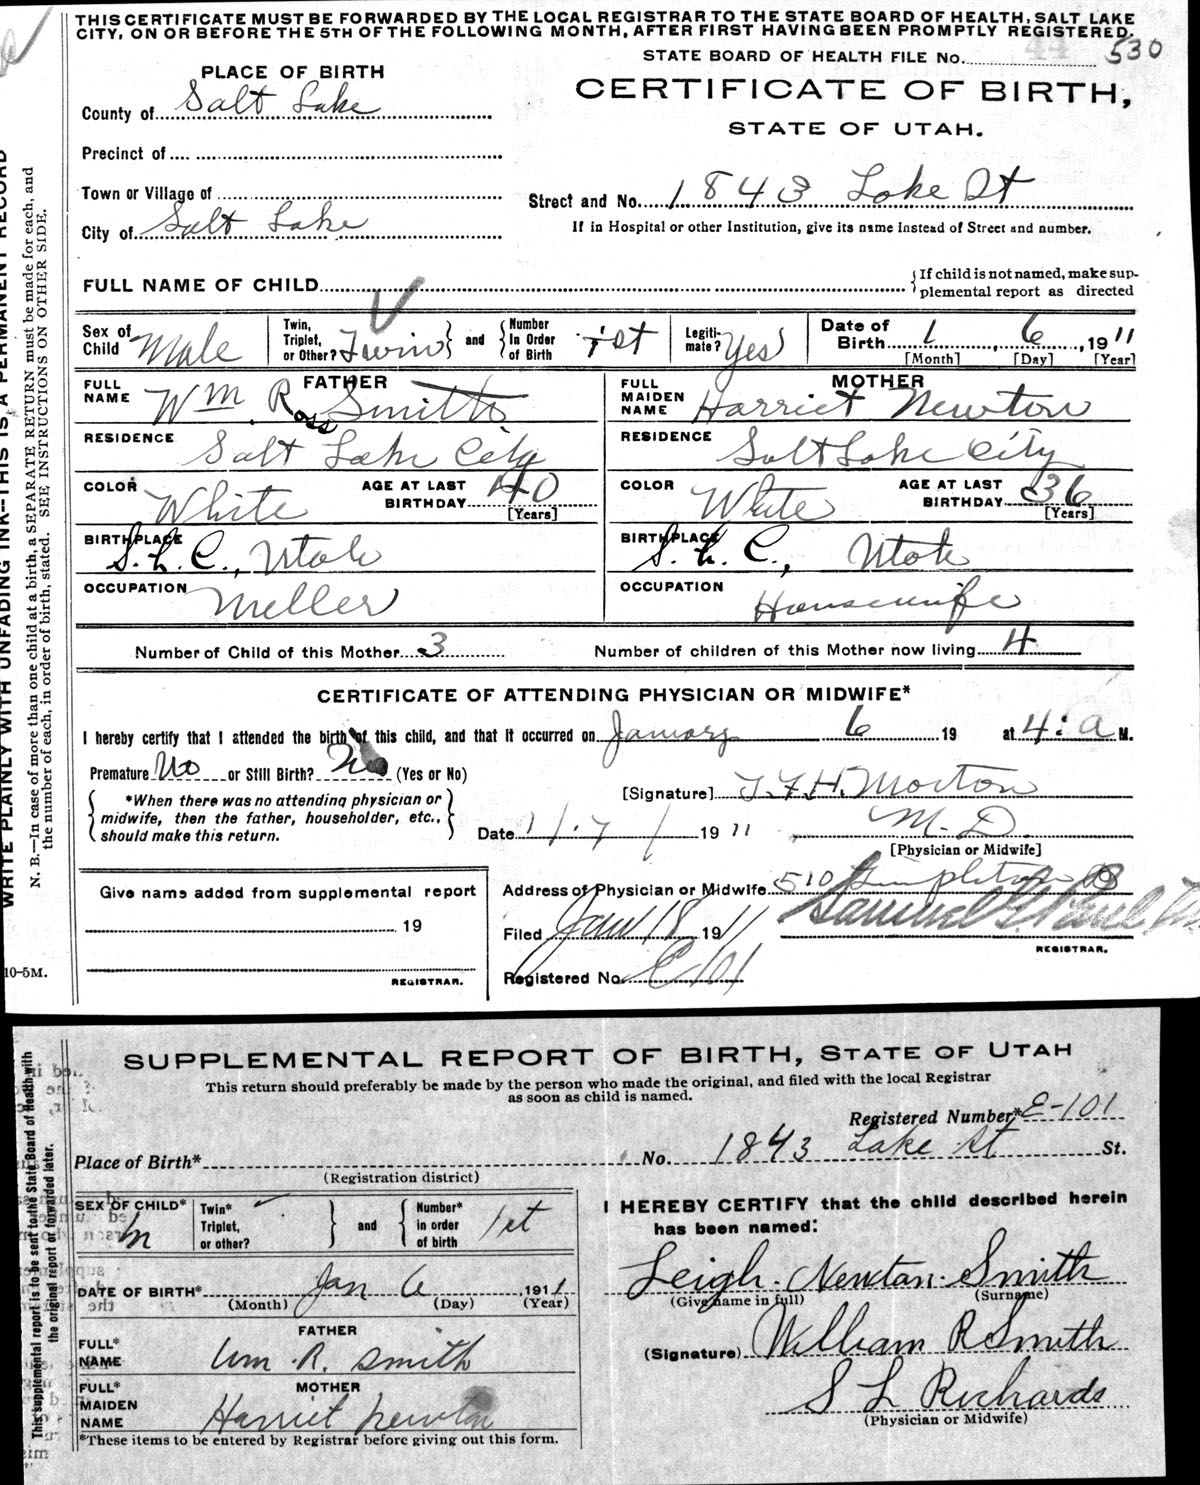 THIS CERTIFICATE MUST BE FORWARDED BY THE LOCAL REGISTRAR TO THE STATE BOARD OF HEALTH, SALT LAKE
CITY, ON OR BEFORE THE 5TH OF THE FOLLOWING MONTH, AFTER FIRST HAVING BEEN PROMPTLY REGISTERED.
STATE BOARD OF HEALTH FILE No. 530
PLACE OF BIRTH
CERTIFICATE OF BIRTH,
STATE OF UTAH.
County of Salt Lake
Precinct of
Town or Village of
Street and No. 1843 Lake St
City of Salt Lake
If in Hospital or other Institution, give its name instead of Street and number.
FULL NAME OF CHILD
If child is not named, make sup-
plemental report as directed
Sex of Child Male
Twin, Triplet, or Other? Twin and Number In Order of Birth 1st
Legiti-mate? Yes
Date of Birth 1, 6, 1911
[Month] [Day] [Year]
FATHER
FULL NAME Wm. Ross Smith
RESIDENCE Salt Lake City
COLOR White AGE AT LAST BIRTHDAY 40 [Years]
BIRTHPLACE S. L. C., Utah
OCCUPATION Miller
MOTHER
FULL MAIDEN NAME Harriet Newton
RESIDENCE Salt Lake City
COLOR White AGE AT LAST BIRTHDAY 36 [Years]
BIRTHPLACE S. L. C., Utah
OCCUPATION Housewife
Number of Child of this Mother 3 Number of children of this Mother now living 4
CERTIFICATE OF ATTENDING PHYSICIAN OR MIDWIFE*
I hereby certify that I attended the birth of this child, and that it occurred on January 6 19 at 4: a M.
Premature No or Still Birth? No (Yes or No)
*When there was no attending physician or
midwife, then the father, householder, etc.,
should make this return.
[Signature] T.F.H. Morton
M. D.
[Physician or Midwife]
Date 1/7/ 1911
Give name added from supplemental report
19
REGISTRAR.
Address of Physician or Midwife 510
Filed Jan 18 1911
REGISTRAR.
Registered No. E101
WRITE PLAINLY WITH UNFADING INK--THIS IS A PERMANENT RECORD
N. B.—In case of more than one child at a birth, a SEPARATE RETURN must be made for each, and
the number of each, in order of birth, stated. SEE INSTRUCTIONS ON OTHER SIDE.
10-5M.
SUPPLEMENTAL REPORT OF BIRTH, STATE OF UTAH
This return should preferably be made by the person who made the original, and filed with the local Registrar
as soon as child is named.
Registered Number* E-101
Place of Birth* No. 1843 Lake St St.
(Registration district)
SEX OF CHILD* M
Twin* Triplet, or other? and Number* in order of birth 1st
DATE OF BIRTH* Jan 6 1911
(Month) (Day) (Year)
FATHER
FULL* NAME Wm. R. Smith
MOTHER
FULL* MAIDEN NAME Harriet Newton
*These items to be entered by Registrar before giving out this form.
I HEREBY CERTIFY that the child described herein
has been named:
Leigh Newton Smith
(Give name in full) (Surname)
(Signature) William R Smith
S L Richards
(Physician or Midwife)
This supplemental report is to be sent to the State Board of Health with
the original report or forwarded later.